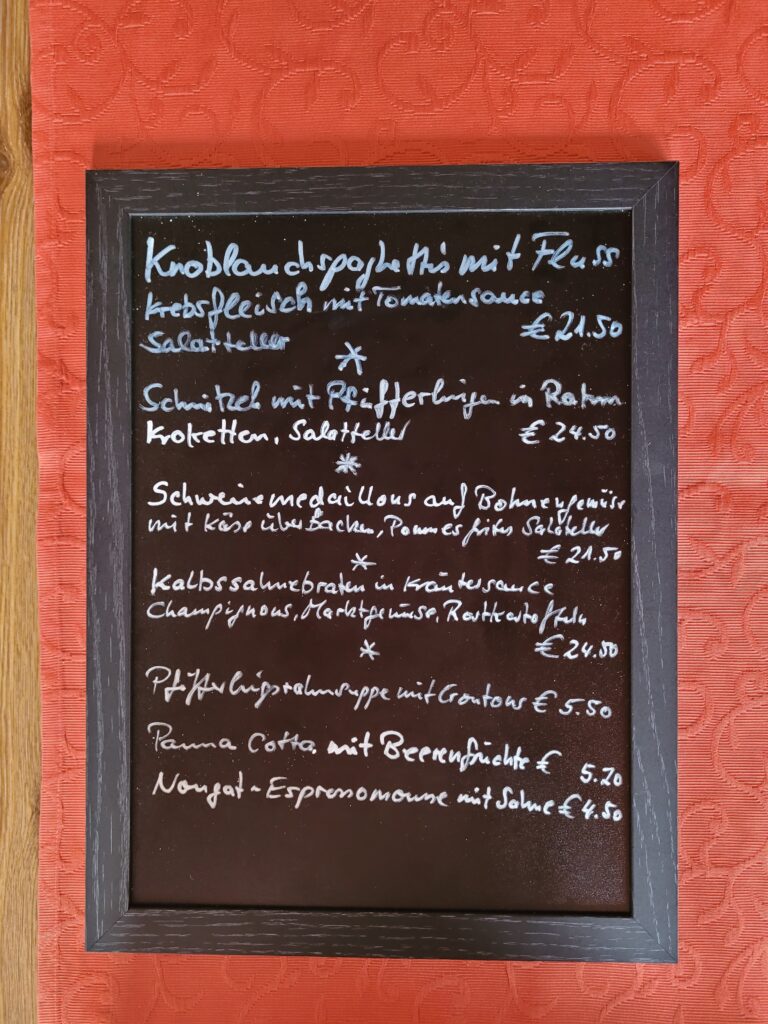 Knoblauchspaghettis mit Fluss
krebsfleisch mit Tomatensauce
€ 21.50
Salatteller
*
Schnitzel mit Pfifferlingen in Rahm
Kroketten, Salatteller € 24.50
*
Schweinemedaillons auf Bohnengemüse
mit Käse überbacken, Pommes frites Salatteller
€ 21.50
*
Kalbssahnebraten in Kräutersauce
Champignons, Marktgemüse, Röstkartoffeln
€ 24.50
*
Pfifferlingsrahmsuppe mit Croutons € 5.50
Panna Cotta mit Beerenfrüchte € 5.20
Nougat-Espressomousse mit Sahne € 4.50